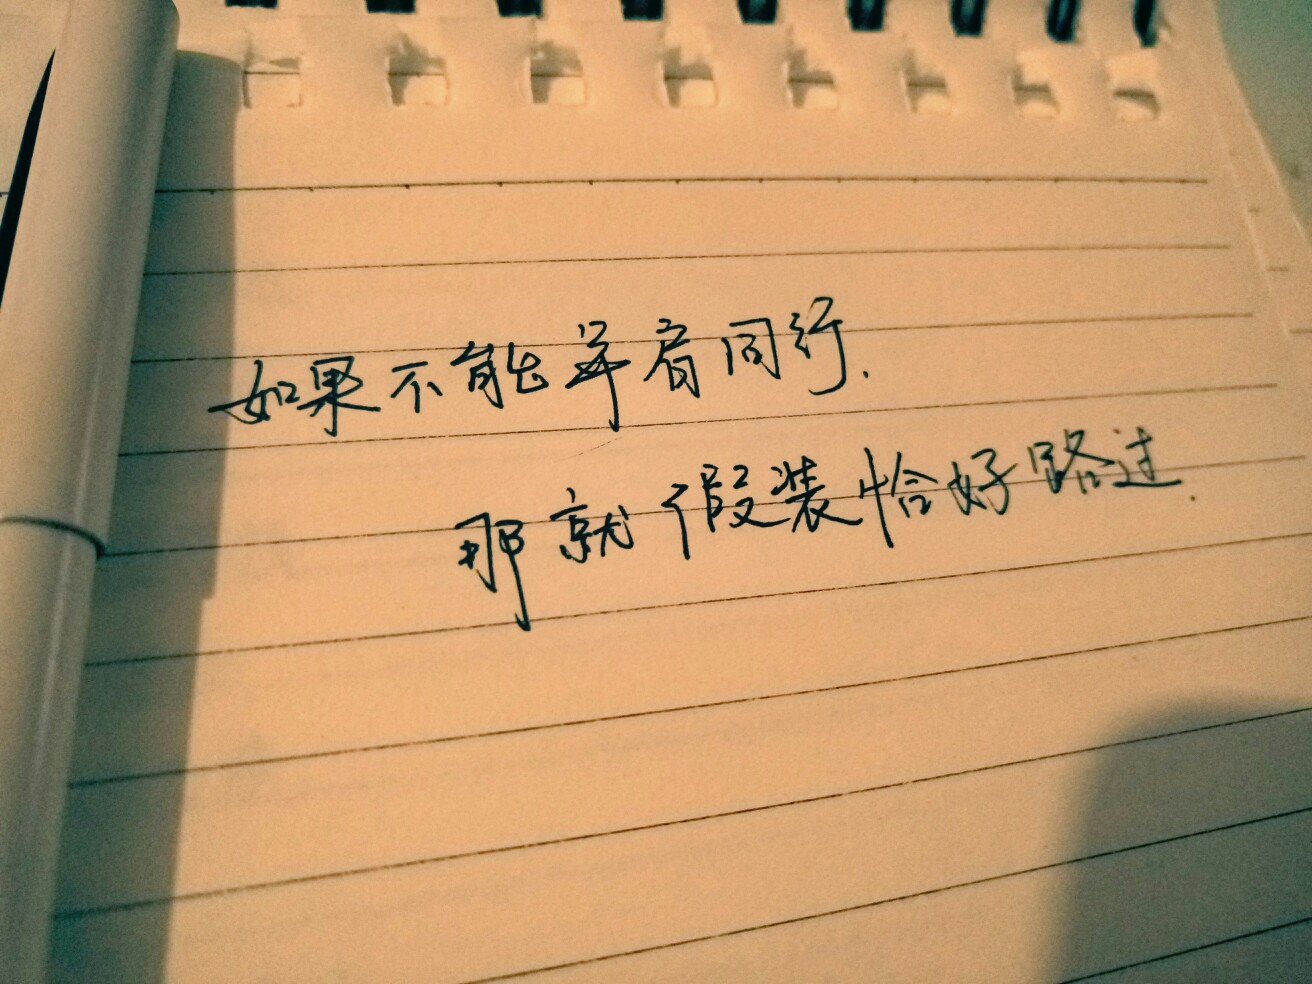 如果不能并肩同行.
那就假装恰好路过.